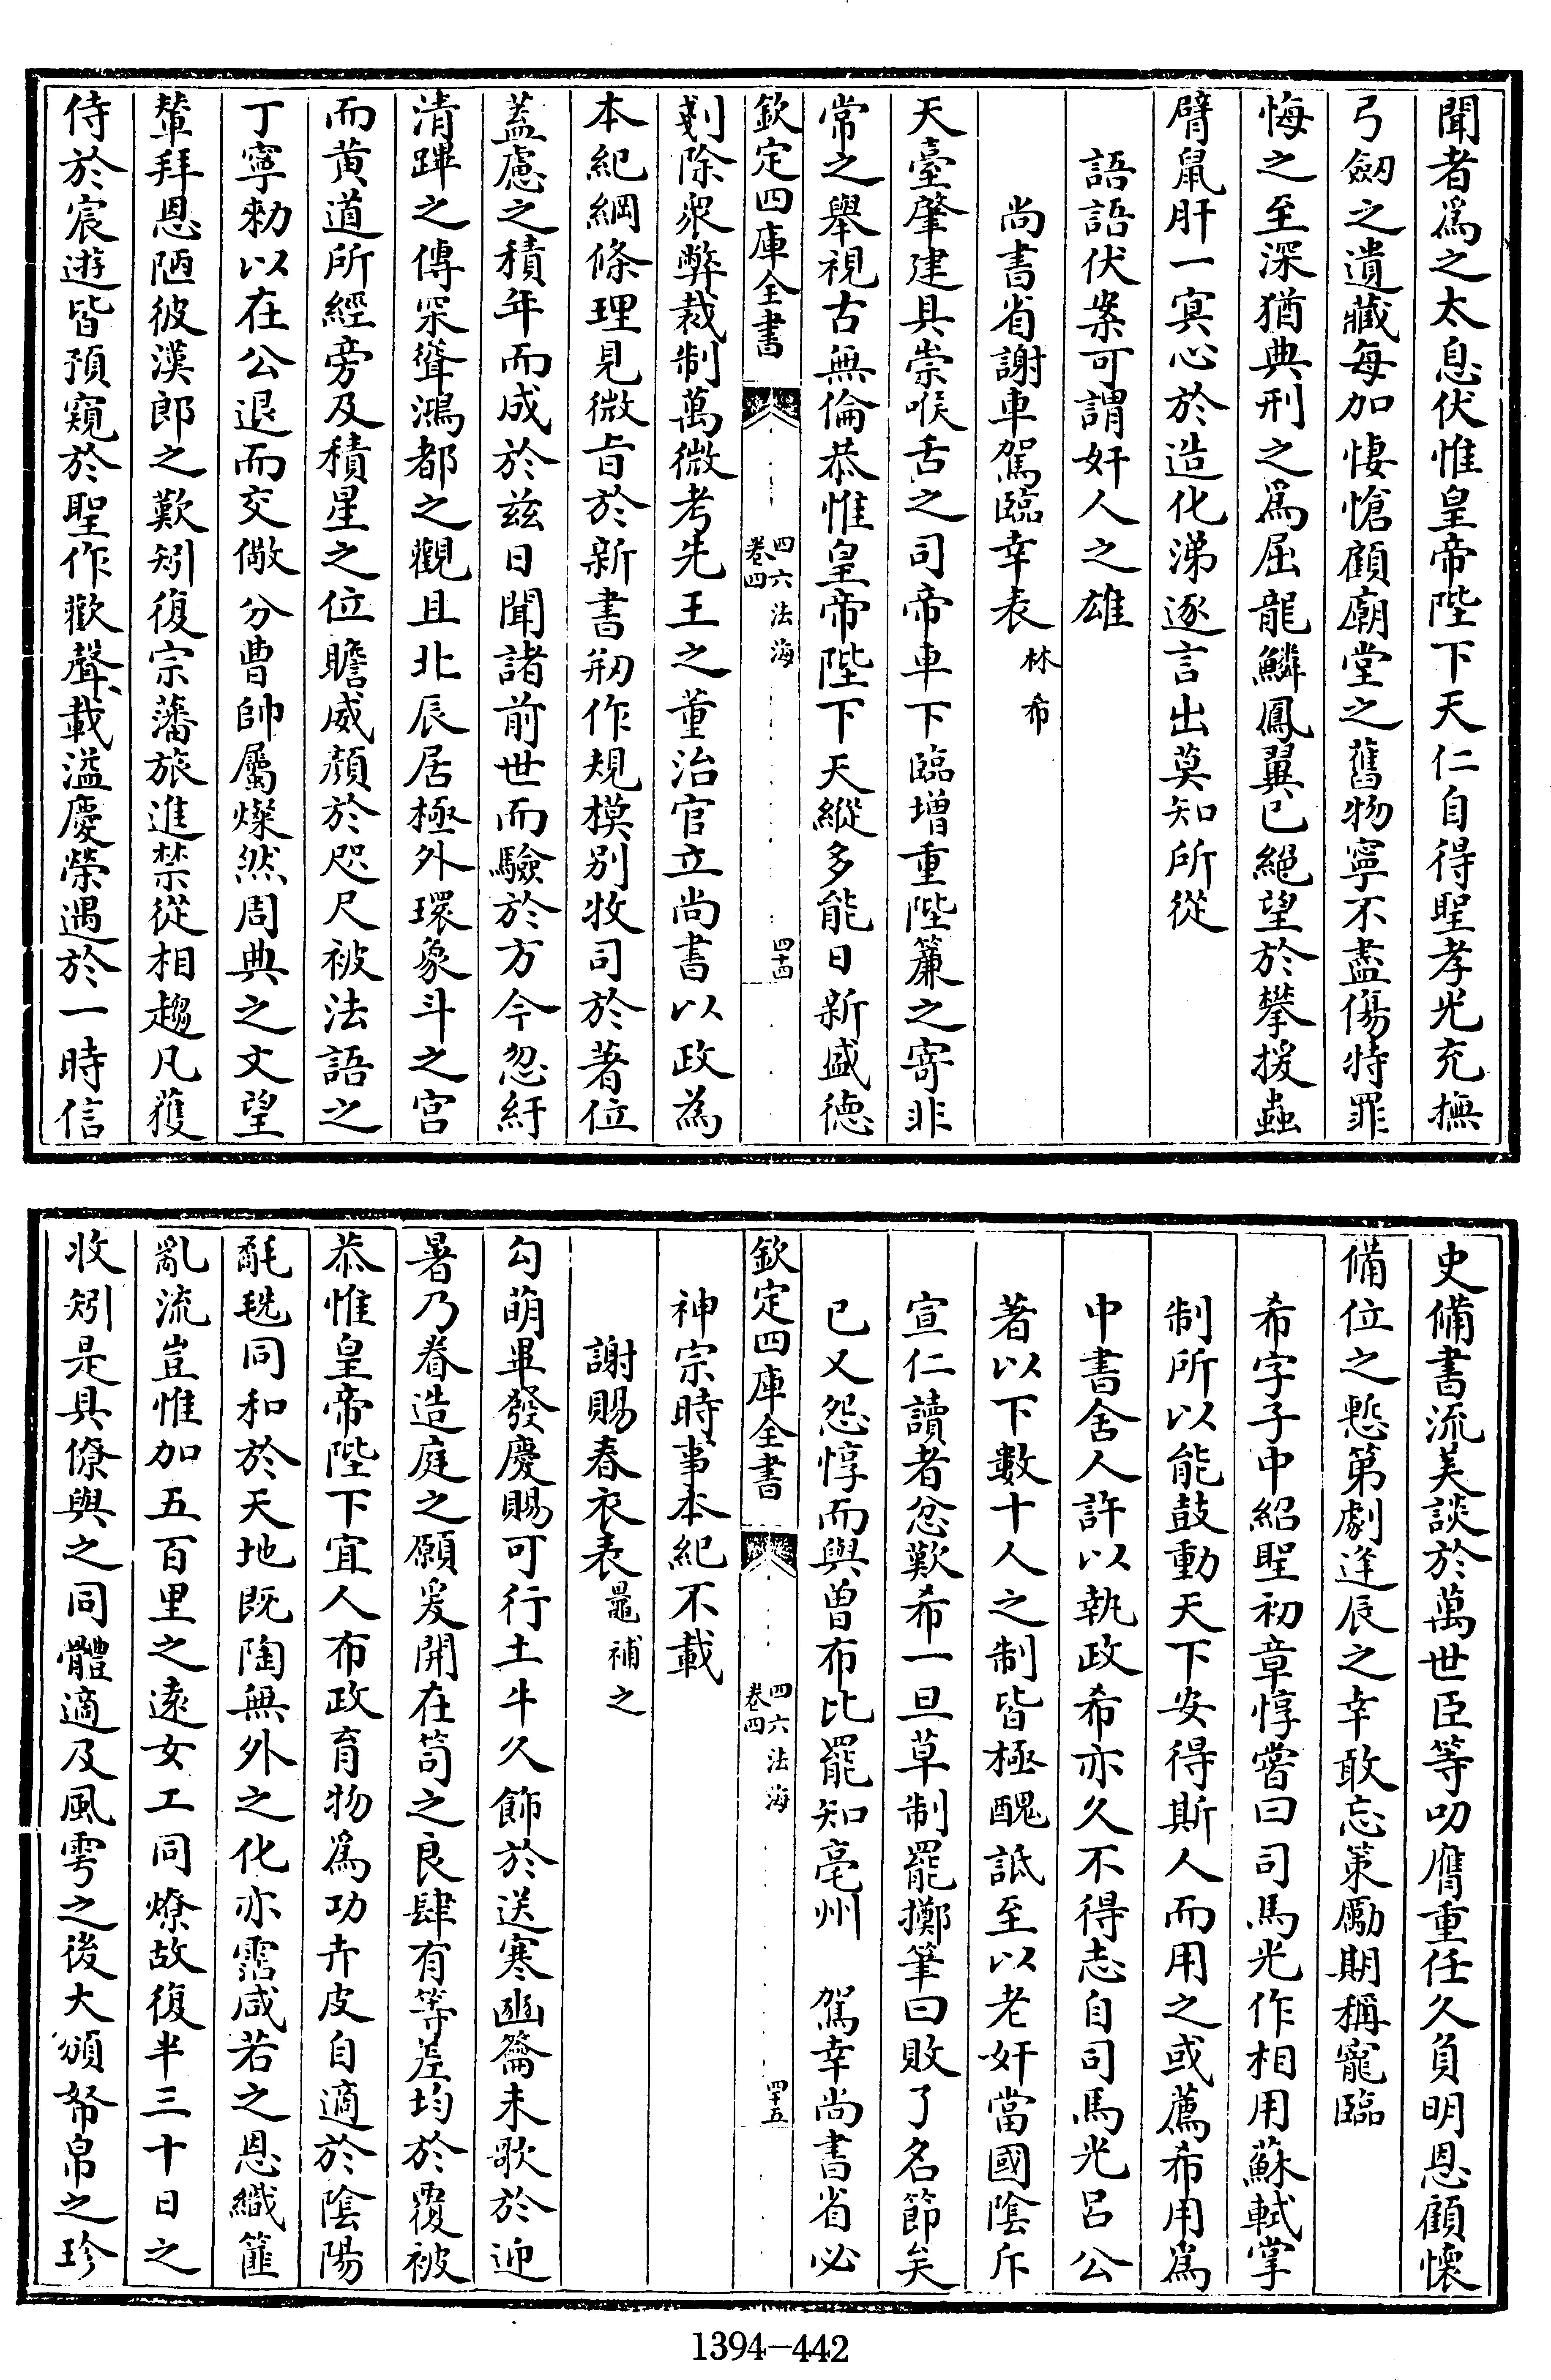 聞者爲之太息伏惟皇帝陛下天仁自得聖孝光充撫
弓劒之遺藏每加悽愴顧廟堂之舊物寧不盡傷特罪
悔之至深猶典刑之爲屈龍鱗鳳翼已絕望於攀援蟲
臂鼠肝一冥心於造化涕逐言出莫知所從
語語伏案可謂奸人之雄
尚書省謝車駕臨幸表林希
天臺肇建具崇喉舌之司帝車下臨增重陛簾之寄非
常之舉視古無倫恭惟皇帝陛下天縱多能日新盛德
欽定四庫全書 四六法海 卷四 四十四
剗除衆弊裁制萬微考先王之董治官立尚書以政為
本紀綱條理見微旨於新書剏作規模别收司於著位
蓋慮之積年而成於兹日聞諸前世而驗於方今忽紆
清蹕之傳罙聳鴻都之觀且北辰居極外環象斗之宫
而黄道所經旁及積星之位瞻威顔於咫尺被法語之
丁寧勑以在公退而交儆分曹帥屬燦然周典之文望
輦拜恩陋彼漢郎之歎矧復宗藩旅進禁從相趨凡獲
侍於宸遊皆預窺於聖作歡聲載溢慶榮遇於一時信
史備書流美談於萬世臣等叨膺重任久負明恩顧懷
備位之慙第劇逢辰之幸敢忘策勵期稱寵臨
希字子中紹聖初章惇嘗曰司馬光作相用蘇軾掌
制所以能鼓動天下安得斯人而用之或薦希用爲
中書舍人許以執政希亦久不得志自司馬光吕公
著以下數十人之制皆極醜詆至以老奸當國陰斥
宣仁讀者忿歎希一旦草制罷擲筆曰敗了名節矣
已又怨惇而與曾布比罷知亳州 駕幸尚書省必
欽定四庫全書 四六法海 卷四 四十五
神宗時事本紀不載
謝賜春衣表鼂補之
勾萌畢發慶賜可行土牛久飾於送寒豳籥未歌於迎
暑乃眷造庭之願爰開在笥之良肆有等差均於覆被
恭惟皇帝陛下宜人布政育物爲功卉皮自適於陰陽
氄毨同和於天地既陶無外之化亦霑咸若之恩織篚
亂流豈惟加五百里之遠女工同燎故復半三十日之
收矧是具僚與之同體適及風雩之後大頒帑帛之珍
1394-442